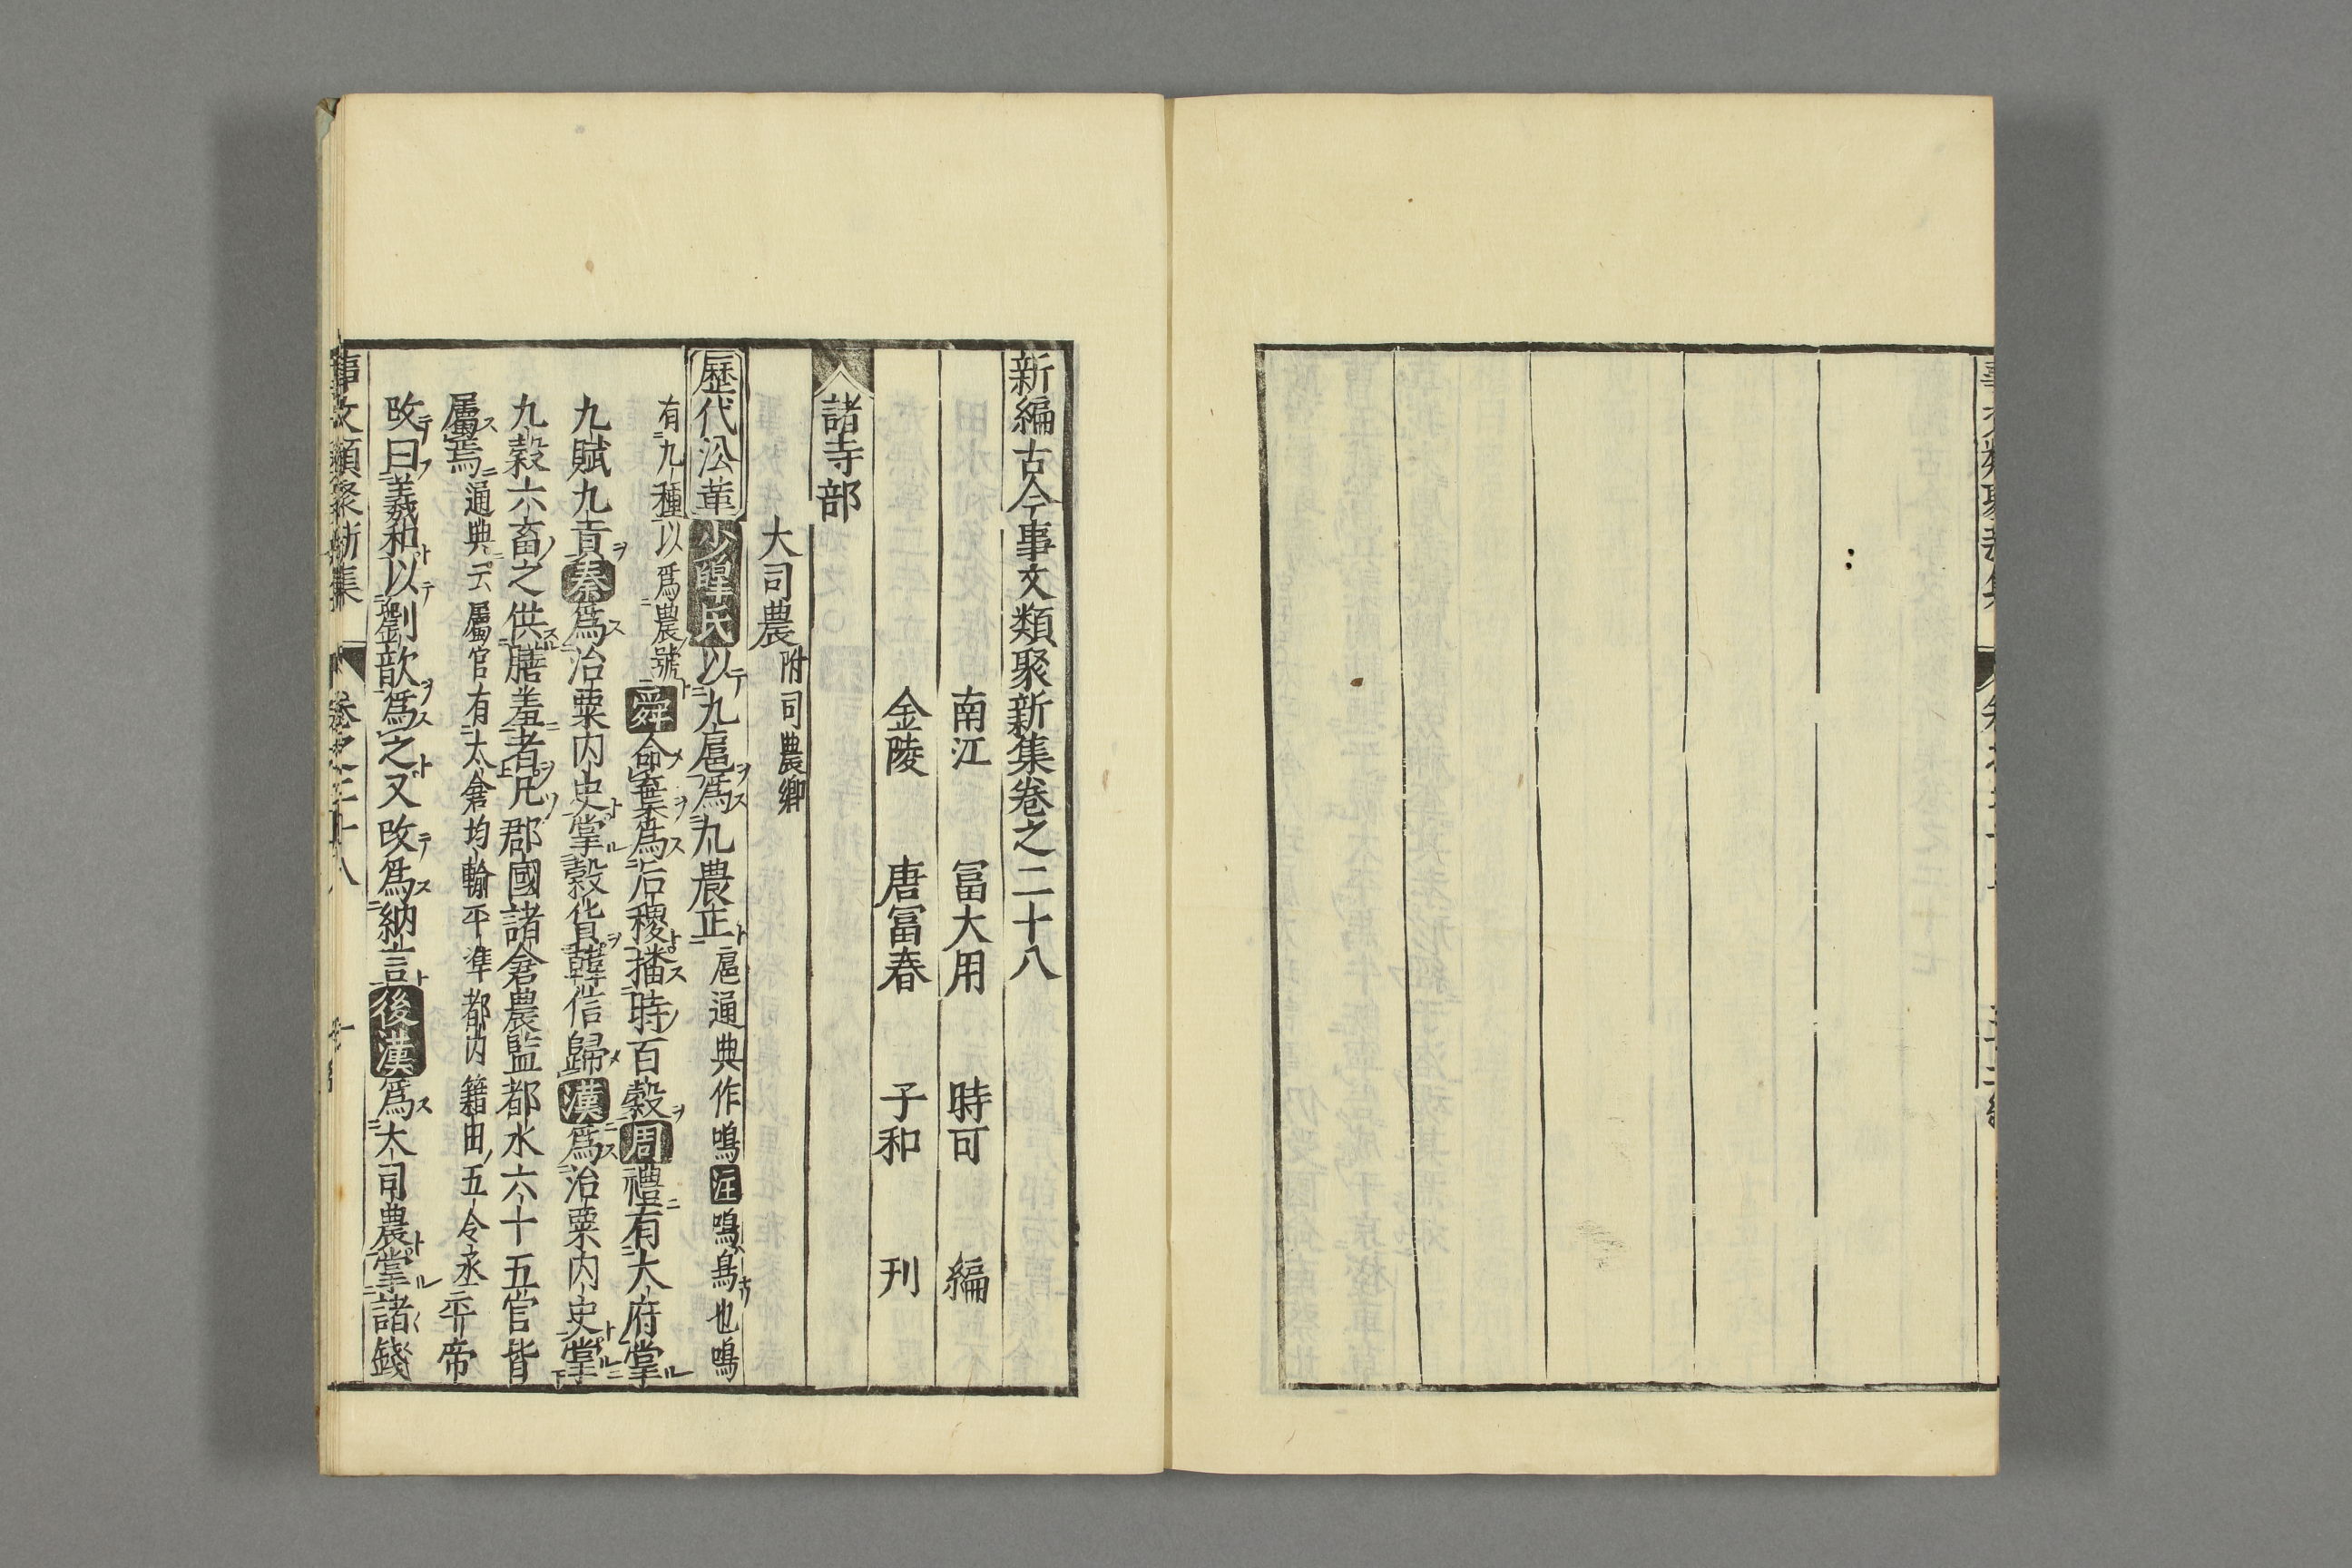 新編古今事文類聚新集卷之二十八
南江　冨大用　時可　編
金陵　唐冨春　子和　刊
諸寺部
大司農附司農卿
歷代㳂革少皥氏以九扈爲九農正扈通典作鳴注鳴鳥也鳴
有九種以爲農號舜命棄爲后稷播時百穀周禮有大府掌
九賦九貢秦爲治粟内史掌穀貨韓信歸漢爲治粟内史掌
九穀六畜之供膳羞者凡郡國諸倉農監都水六十五官皆
屬焉通典云屬官有太倉均輸平準都内籍田五令丞平帝
改曰羲和以劉歆爲之又改爲納言後漢爲大司農掌諸錢
事文類聚新集　卷之二十八